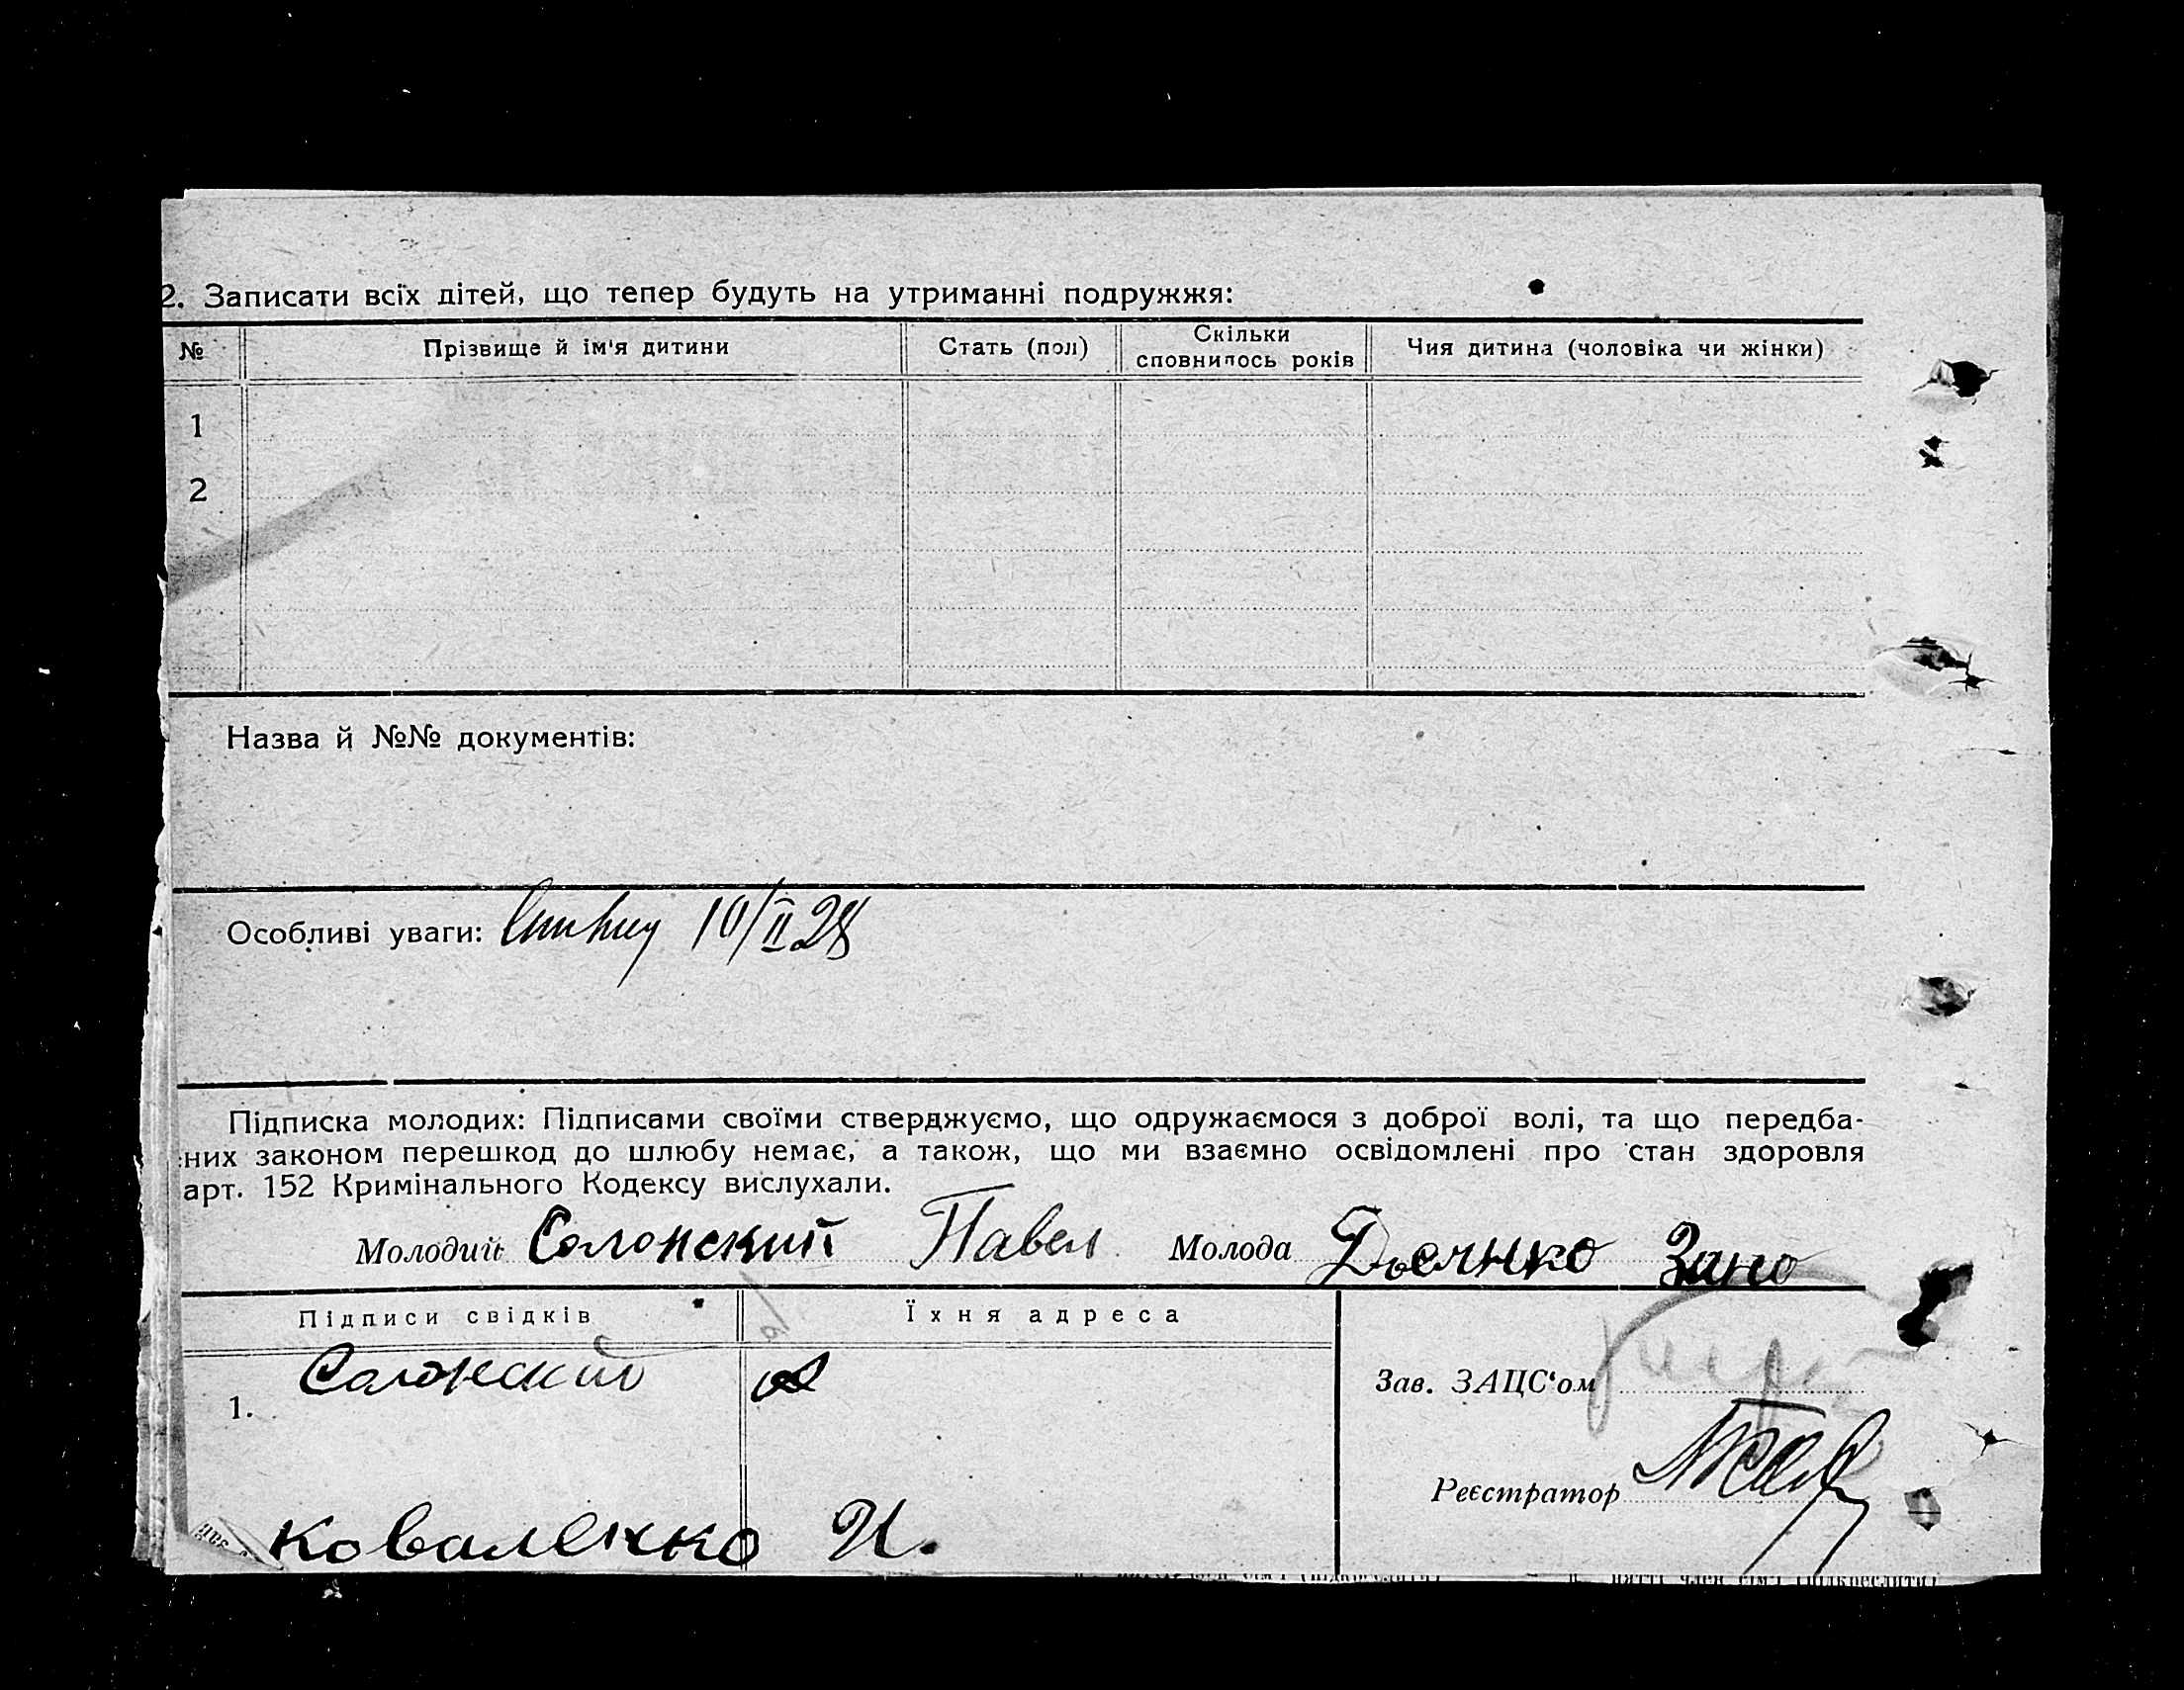 2. Записати всіх дітей, що тепер будуть на утриманні подружжя:
№ Прізвище й ім'я дитини Стать (пол) Скільки сповнилось років Чия дитина (чоловіка чи жінки)
1
2
Назва й №№ документів:
Особливі уваги: 10/II 28
Підписка молодих: Підписами своїми стверджуємо, що одружаємося з доброї волі, та що передба-
них законом перешкод до шлюбу немає, а також, що ми взаємно освідомлені про стан здоровля
арт. 152 Кримінального Кодексу вислухали.
Молодий Солонский Павел Молода
Підписи свідків Їхня адреса
Солонский
Зав. ЗАЦС'ом
1.
Реєстратор
Коваленко И.